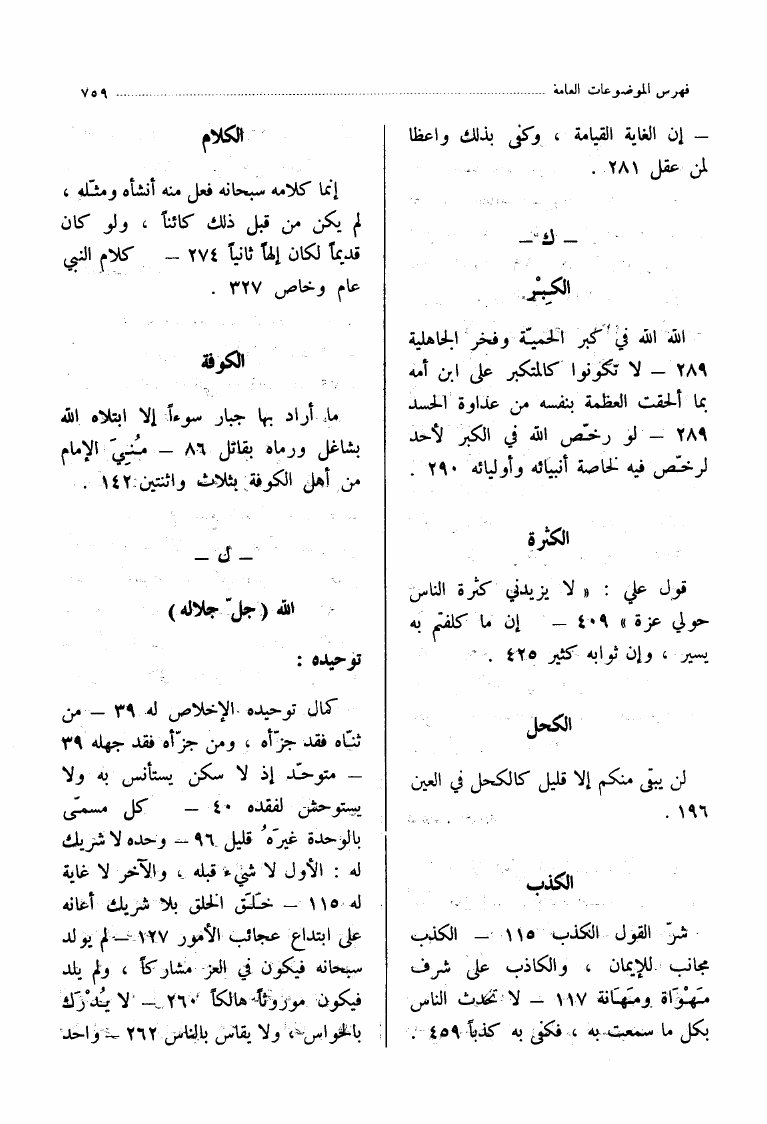 فهرس الموضوعات العامة ٧٥٩
– إن الغاية القيامة ، وكفى بذلك واعظا
لمن عقل ٢٨١ .
– ك –
الكِبْر
الله الله في كبر الحميّة وفخر الجاهلية
٢٨٩ – لا تكونوا كالمتكبر على ابن أمه
بما ألحقت العظمة بنفسه من عداوة الحسد
٢٨٩ – لو رخّص الله في الكبر لأحد
لرخّص فيه لخاصة أنبيائه وأوليائه ٢٩٠ .
الكثرة
قول علي : « لا يزيدني كثرة الناس
حولي عزة » ٤٠٩ – إن ما كلفتم به
يسير ، وإن ثوابه كثير ٤٢٥ .
الكحل
لن يبقى منكم إلا قليل كالكحل في العين
١٩٦ .
الكذب
شرّ القول الكذب ١١٥ – الكذب
مجانب للإيمان ، والكاذب على شرف
مَهْوَاة ومَهَانة ١١٧ – لا تحدث الناس
بكل ما سمعت به ، فكفى به كذباً ٤٥٩ .
الكلام
إنما كلامه سبحانه فعل منه أنشأه ومثّله ،
لم يكن من قبل ذلك كائناً ، ولو كان
قديماً لكان إلهاً ثانياً ٢٧٤ – كلام النبي
عام وخاص ٣٢٧ .
الكوفة
ما أراد بها جبار سوءاً إلا ابتلاه الله
بشاغل ورماه بقاتل ٨٦ – مُنِيَ الإمام
من أهل الكوفة بثلاث واثنتين ١٤٢ .
– ل –
الله (جلّ جلاله)
توحيده :
كمال توحيده الإخلاص له ٣٩ – من
ثنّاه فقد جزّأه ، ومن جزّأه فقد جهله ٣٩
– متوحّد إذ لا سكن يستأنس به ولا
يستوحش لفقده ٤٠ – كل مسمّى
بالوحدة غيرَهُ قليل ٩٦ – وحده لا شريك
له : الأول لا شيء قبله ، والآخر لا غاية
له ١١٥ – خَلَقَ الخلق بلا شريك أعانه
على ابتداع عجائب الأمور ١٢٧ – لم يولد
سبحانه فيكون في العز مشاركاً ، ولم يلد
فيكون موروثاً هالكاً ٢٦٠ – لا يُدْرَك
بالحواس ، ولا يقاس بالناس ٢٦٢ – واحد